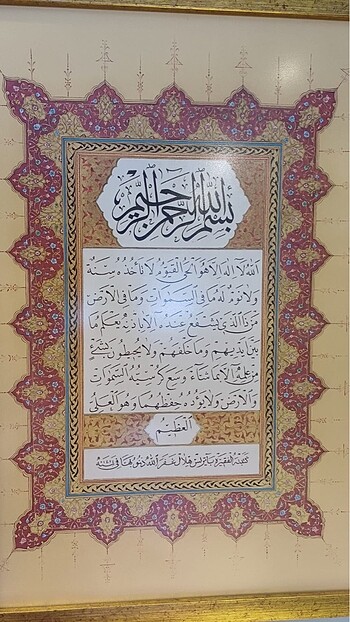 بسم الله الرحمن الرحيم
الله لا اله الا هو الحي القيوم لا تأخذه سنة
ولا نوم له ما في السموات وما في الارض
من ذا الذي يشفع عنده الا باذنه يعلم ما
بين ايديهم وما خلفهم ولا يحيطون بشيء
من علمه الا بما شاء وسع كرسيه السموات
والارض ولا يؤده حفظهما وهو العلي
العظيم
كتبه الفقير هلال غفر الله ذنوبهما في